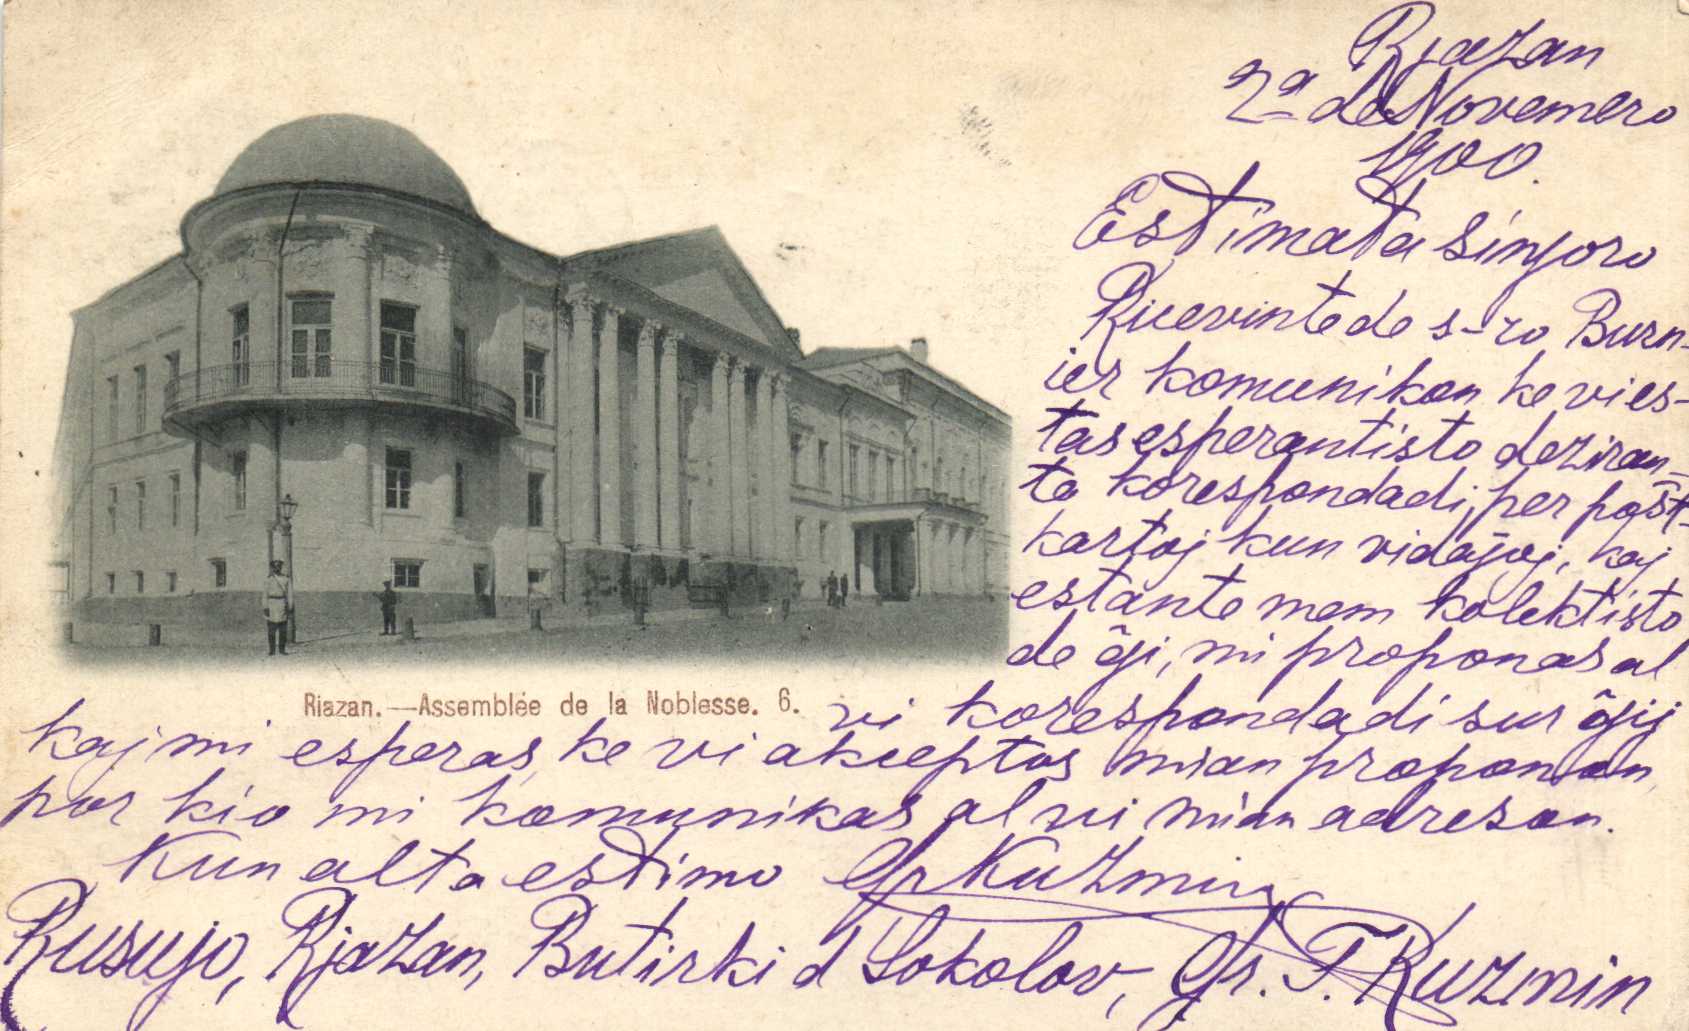 Rjazan
2ª de Novemero
1900.
Estimata sinjoro
Ricevinte de s-ro Burn-
ier komunikon ke vi es-
tas esperantisto deziran-
ta korespondadi per poŝt-
kartoj kun vidaĵoj, kaj
estante mem kolektisto
de ĝi, mi proponas al
vi korespondadi sur ĝij
Riazan.—Assemblée de la Noblesse. 6.
kaj mi esperas, ke vi akceptos mian proponon,
por kio mi komunikas al vi mian adreson.
Kun alta estimo Gr Kuzmin
Rusujo, Rjazan, Butirki d Sokolov, Gr. T. Kuzmin